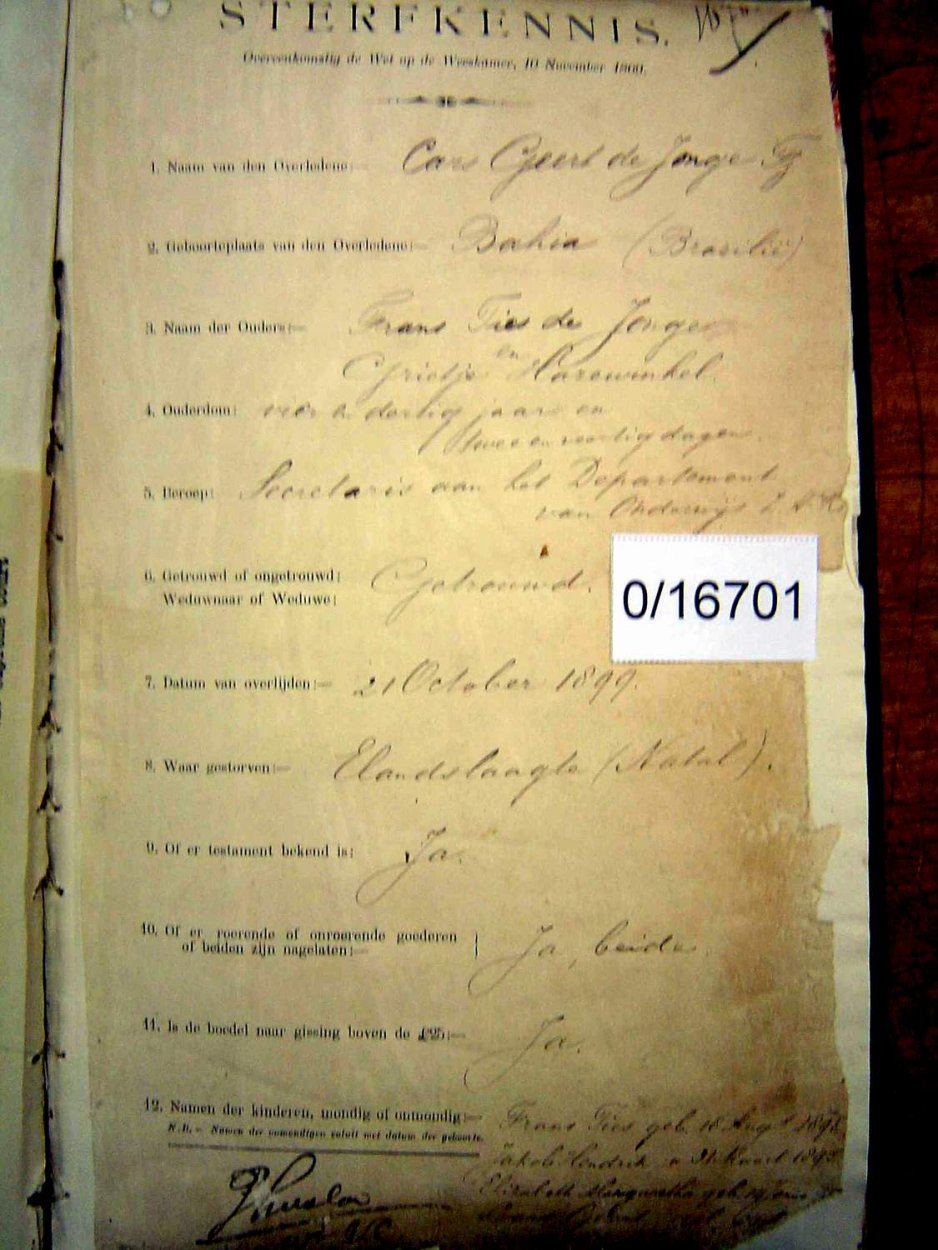 STERFKENNIS.
Overeenkomstig de Wet op de Weeskamer, 10 November 1860.
1. Naam van den Overledene:— Cars Geert de Jonge Fz
2. Geboorteplaats van den Overledene:— Bahia (Brasilië)
3. Naam der Ouders:— Frans Ties de Jonge
en
Grietje Harewinkel.
4. Ouderdom: vier en dertig jaar en
twee en veertig dagen.
5. Beroep: Secretaris aan het Departement
van Onderwijs Z. A. R.
6. Getrouwd of ongetrouwd; Getrouwd.
Weduwnaar of Weduwe;
0/16701
7. Datum van overlijden:— 21 October 1899.
8. Waar gestorven:— Elandslaagte (Natal).
9. Of er testament bekend is; Ja.
10. Of er roerende of onroerende goederen
of beiden zijn nagelaten:— Ja, beide.
11. Is de boedel naar gissing boven de £25:— Ja.
12. Namen der kinderen, mondig of onmondig:— Frans Ties geb. 18 Augt
N.B.— Namen der onmondigen voluit met datum der geboorte.
Jakob Hendrik " Maart
Elizabeth Margaretha geb.